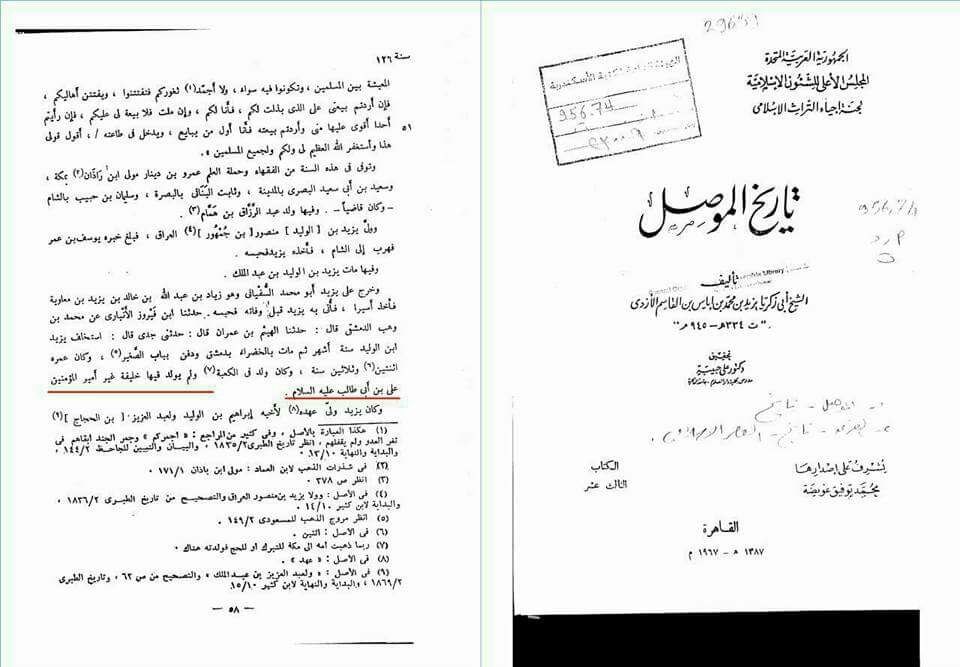 الجمهورية العربية المتحدة
المجلس الأعلى للشئون الإسلامية
لجنة إحياء التراث الإسلامى
956.74
تاريخ الموصل
تأليف
الشيخ أبى زكريا يزيد بن محمد بن إياس بن القاسم الأزدى
"ت ٣٣٤ھ - ٩٤٥ م"
تحقيق
دكتور على حبيبة
يشرف على إصدارها
محمد توفيق عويضة
الكتاب
الثالث عشر
القاهرة
١٣٨٧ ھ - ١٩٦٧ م
سنة ١٢٦
المعيشة بين المسلمين ، وتكونوا فيه سواء ، ولا أجمّد(١) ثغوركم فتفتتنوا ، ويفتتن أهاليكم ،
فإن أردتم بيعتى على الذى بذلت لكم ، فأنا لكم ، وإن ملت فلا بيعة لى عليكم ، فإن رأيتم
أحدا أقوى عليها منى وأردتم بيعته فأنا أول من يبايع ، ويدخل فى طاعته / ، أقول قولى
٥١
هذا وأستغفر الله العظيم لى ولكم ولجميع المسلمين » .
وتوفى فى هذه السنة من الفقهاء وحملة العلم عمرو بن دينار مولى ابن زَاذَان(٢) بمكة ،
وسعيد بن أبى سعيد البصرى بالمدينة ، وثابت البُنَانى بالبصرة ، وسليمان بن حبيب بالشام
– وكان قاضياً – . وفيها ولد عبد الرَّزَّاق بن هَمَّام(٣) .
وولَّ يزيد بن [ الوليد ] منصور [ بن جُمْهُور ](٤) العراق ، فبلغ خبره يوسف بن عمر
فهرب إلى الشام ، فأخذه يزيد فحبسه .
وفيها مات يزيد بن الوليد بن عبد الملك .
وخرج على يزيد أبو محمد السُّفيانى وهو زياد بن عبد الله بن خالد بن يزيد بن معاوية
فأخذ أسيرا ، فأتى به يزيد قبل وفاته فحبسه . حدثنا ابن فَيْروز الأَنْبارى عن محمد بن
وهب الدمشقى قال : حدثنا الهيثم بن عمران قال : حدثنى جدى قال : استخلف يزيد
ابن الوليد ستة أشهر ثم مات بالخضراء بدمشق ودفن بباب الصَّغير(٥) ، وكان عمره
اثنتين(٦) وثلاثين سنة ، وكان ولد فى الكعبة(٧) ولم يولد فيها خليفة غير أمير المؤمنين
على بن أبى طالب عليه السلام .
وكان يزيد ولى عهده(٨) لأخيه إبراهيم بن الوليد ولعبد العزيز [ بن الحجاج ](٩)
(١) هكذا العبارة بالأصل ، وفى كثير من المراجع : « أجمركم » وجمر الجند أبقاهم فى
ثغر العدو ولم يقفلهم . انظر تاريخ الطبرى ١٨٣٥/٢ . والبيان والتبيين للجاحظ ١٤٤/٢ .
والبداية والنهاية ١٣/١٠ .
(٢) فى شذرات الذهب لابن العماد : مولى ابن باذان ١٧١/١
(٣) انظر ص ٣٧٨ .
(٤) فى الأصل : وولا يزيد بن منصور العراق والتصحيح من تاريخ الطبرى ١٨٣٦/٢ .
والبداية لابن كثير ١٤/١٠ .
(٥) انظر مروج الذهب للمسعودى ١٤٩/٢ .
(٦) فى الأصل : اثنين .
(٧) ربما ذهبت أمه الى مكة للتبرك أو للحج فولدته هناك .
(٨) فى الأصل : « عهد » .
(٩) فى الأصل : « ولعبد العزيز بن عبد الملك » والتصحيح من ص ٦٢ ، وتاريخ الطبرى
١٨٦٩/٢ ، والبداية والنهاية لابن كثير ١٥/١٠ .
— ٥٨ —